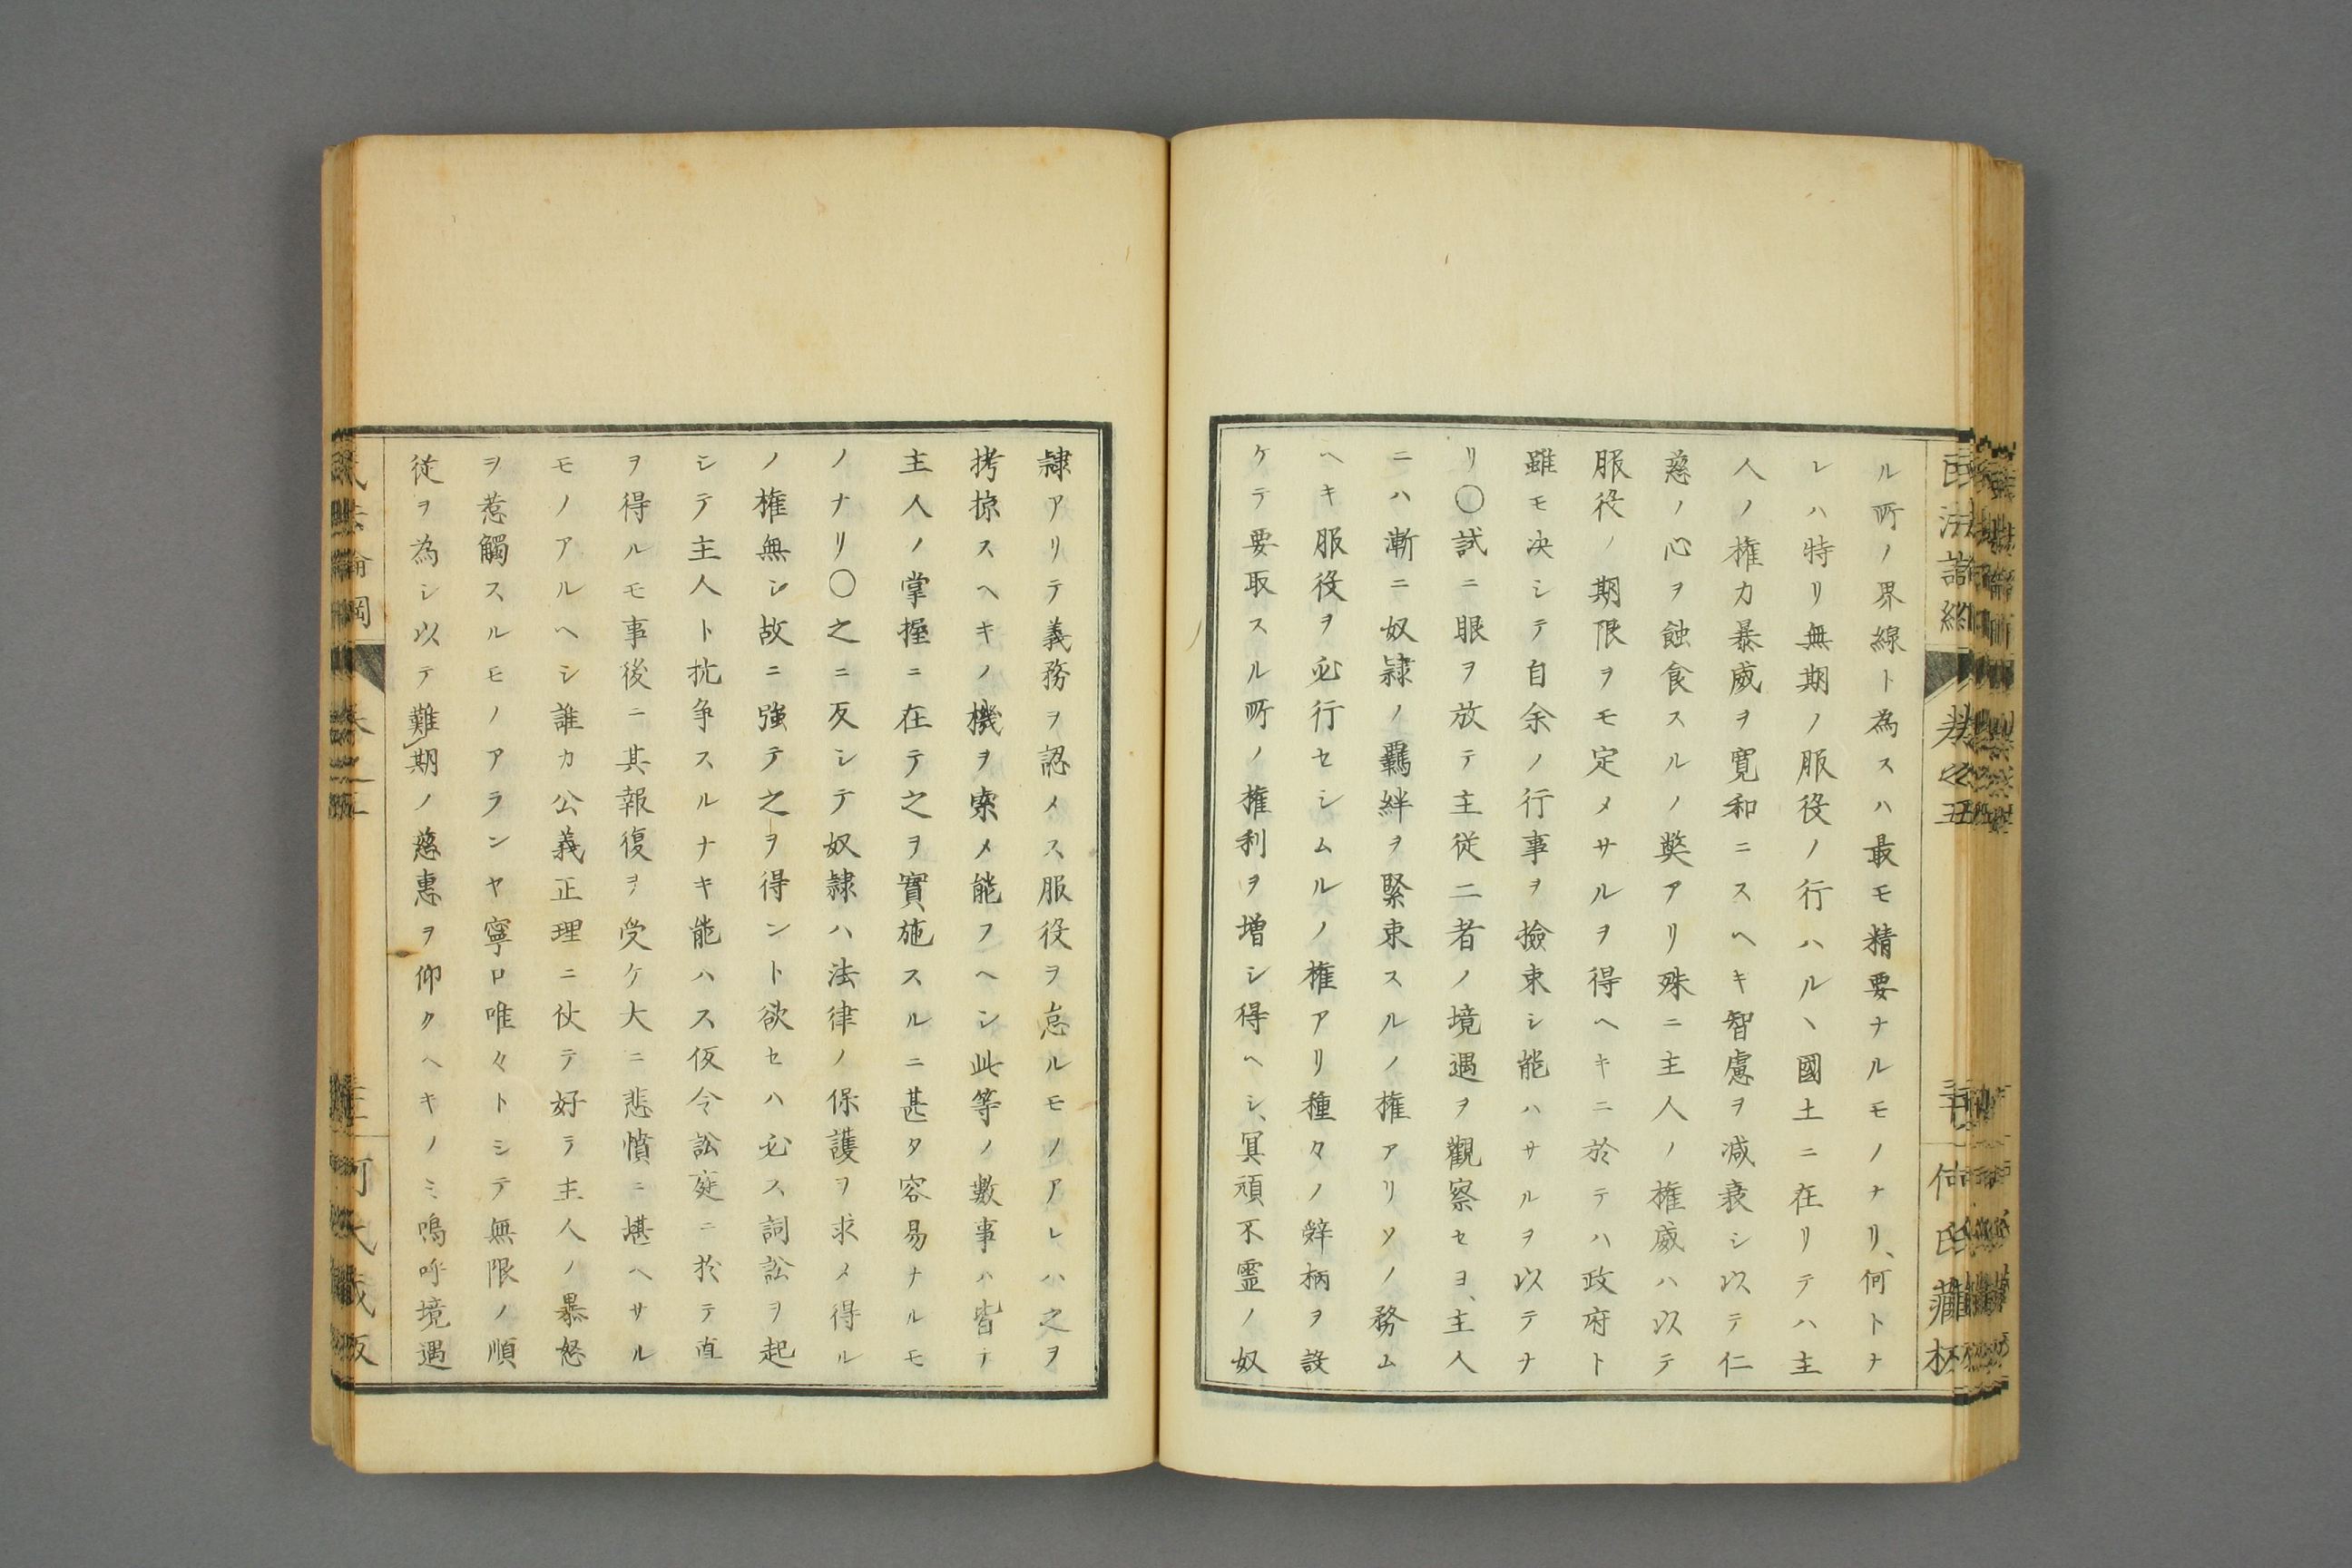 ル所ノ界線ト為スハ最モ精要ナルモノナリ、何トナ
レハ特リ無期ノ服役ノ行ハルヽ國土ニ在リテハ主
人ノ権力暴威ヲ寛和ニスヘキ智慮ヲ減衰シ以テ仁
慈ノ心ヲ蝕食スルノ獘アリ殊ニ主人ノ権威ハ以テ
服役ノ期限ヲモ定メサルヲ得ヘキニ於テハ政府ト
雖モ决シテ自余ノ行事ヲ撿束シ能ハサルヲ以テナ
リ〇試ニ眼ヲ放テ主従二者ノ境遇ヲ觀察セヨ、主人
ニハ漸ニ奴隷ノ羈絆ヲ緊束スルノ権アリソノ務ム
ヘキ服役ヲ必行セシムルノ権アリ種々ノ辤柄ヲ設
ケテ要取スル所ノ権利ヲ増シ得ヘシ、冥頑不霊ノ奴
隷アリテ義務ヲ認メス服役ヲ怠ルモノアレハ之ヲ
拷掠スヘキノ機ヲ索メ能フヘシ此等ノ數事ハ皆テ
主人ノ掌握ニ在テ之ヲ實施スルニ甚タ容易ナルモ
ノナリ〇之ニ反シテ奴隷ハ法律ノ保護ヲ求メ得ル
ノ権無シ故ニ強テ之ヲ得ント欲セハ必ス詞訟ヲ起
シテ主人ト抗争スルナキ能ハス仮令訟廷ニ於テ直
ヲ得ルモ事後ニ其報復ヲ受ケ大ニ悲憤ニ堪ヘサル
モノアルヘシ誰カ公義正理ニ仗テ好ラ主人ノ暴怒
ヲ惹觸スルモノアランヤ寧ロ唯々トシテ無限ノ順
従ヲ為シ以テ難期ノ慈惠ヲ仰クヘキノミ嗚呼境遇
民法論綱 巻之五 何氏蔵版